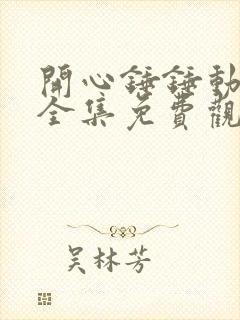 開心錘錘動
全集免費觀
吴林芳